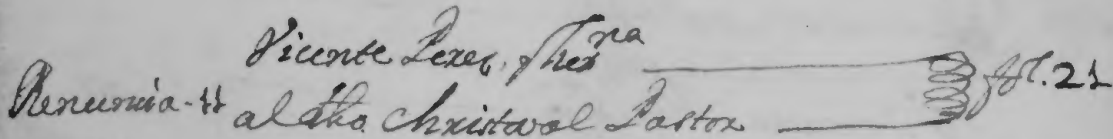 Vicente Perez, Ther^na
Renuncia - al dho Christoval Pastor fol. 21